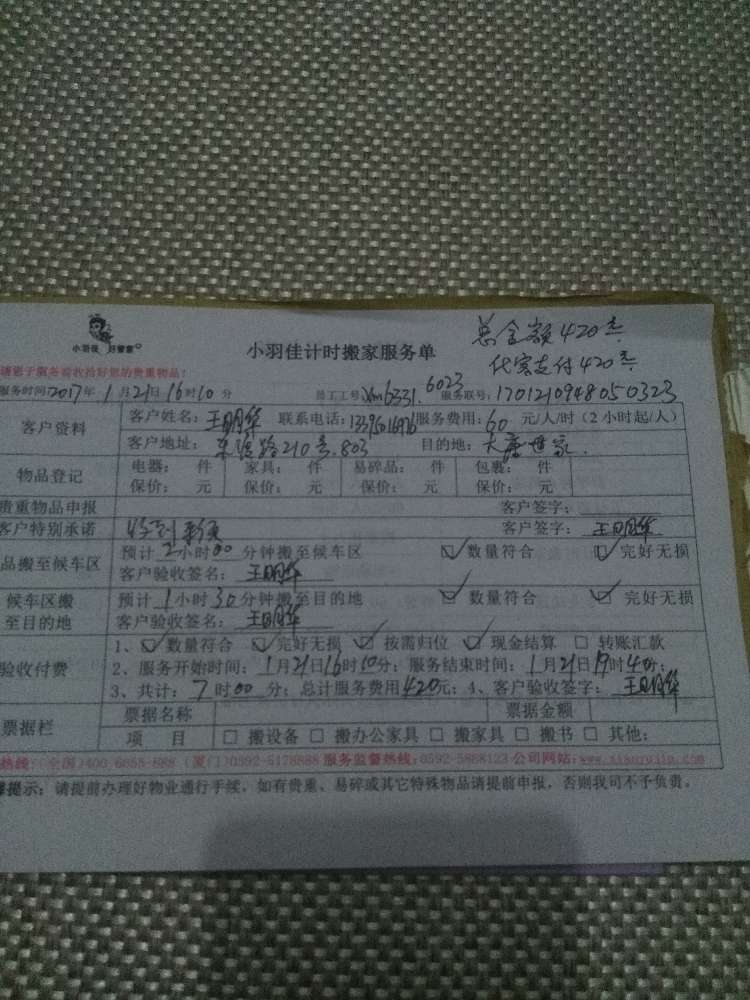 总金额420元
代客支付420元
小羽佳 好管家
小羽佳计时搬家服务单
请妥于服务前收拾好您的贵重物品!
服务时间2017年1月21日16时10分 员工工号Xm6331.6023 服务联号:1701210948050323
客户资料 客户姓名:王明华 联系电话:13395016976 服务费用:60 元/人/时(2小时起/人)
客户地址: 路210号.803 目的地:大唐世家.
物品登记 电器: 件 家具: 件 易碎品: 件 包裹: 件
保价: 元 保价: 元 保价: 元 保价: 元
贵重物品申报 客户签字:
客户特别承诺 客户签字:王明华
品搬至候车区 预计2小时00分钟搬至候车区 ☑数量符合 ☑完好无损
客户验收签名:王明华
候车区搬 预计1小时30分钟搬至目的地 ☑数量符合 ☑完好无损
至目的地 客户验收签名:王明华
验收付费 1、☑数量符合 ☑完好无损 ☑按需归位 ☑现金结算 □转账汇款
2、服务开始时间:1月21日16时10分;服务结束时间:1月21日19时40分;
3、共计:7时00分;总计服务费用420元;4、客户验收签字:王明华
票据栏 票据名称 票据金额
项 目 □搬设备 □搬办公家具 □搬家具 □搬书 □其他:
热线:(全国)400-6055-888 (厦门)0592-5178888 服务监督热线:0592-5888123 公司网站:www.xiaoyujia.com
提示:请提前办理好物业通行手续,如有贵重、易碎或其它特殊物品请提前申报,否则我司不予负责。